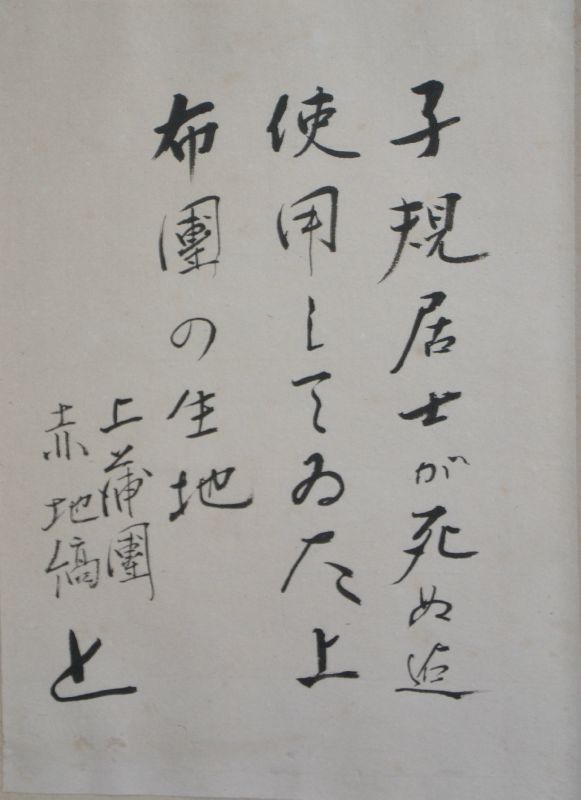 子規居士が死ぬ迄
使用してゐた上
布團の生地
上蒲團
赤地縞
と